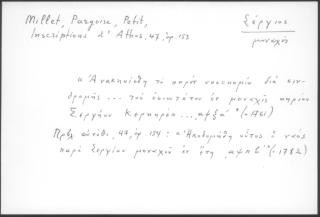 Millet, Pargoire, Petit,
Inscriptions d'Athos, 47, ἀρ. 153
Σέργιος
μοναχὸς
«Ἀνεκηνίσθη τὸ παρὸν διὰ συν-
δρομῆς ... τοῦ ὁσιωτάτου ἐν μοναχοῖς κυρίου
Σεργίου ... αψξα´» (=1761)
Πρβλ. αὐτόθι, 47, ἀρ. 154: «Ἀνοδομήθη οὗτος ὁ ναὸς
παρὰ Σεργίου μοναχοῦ ἐν ἔτη ͵αψπβ´» (=1782)